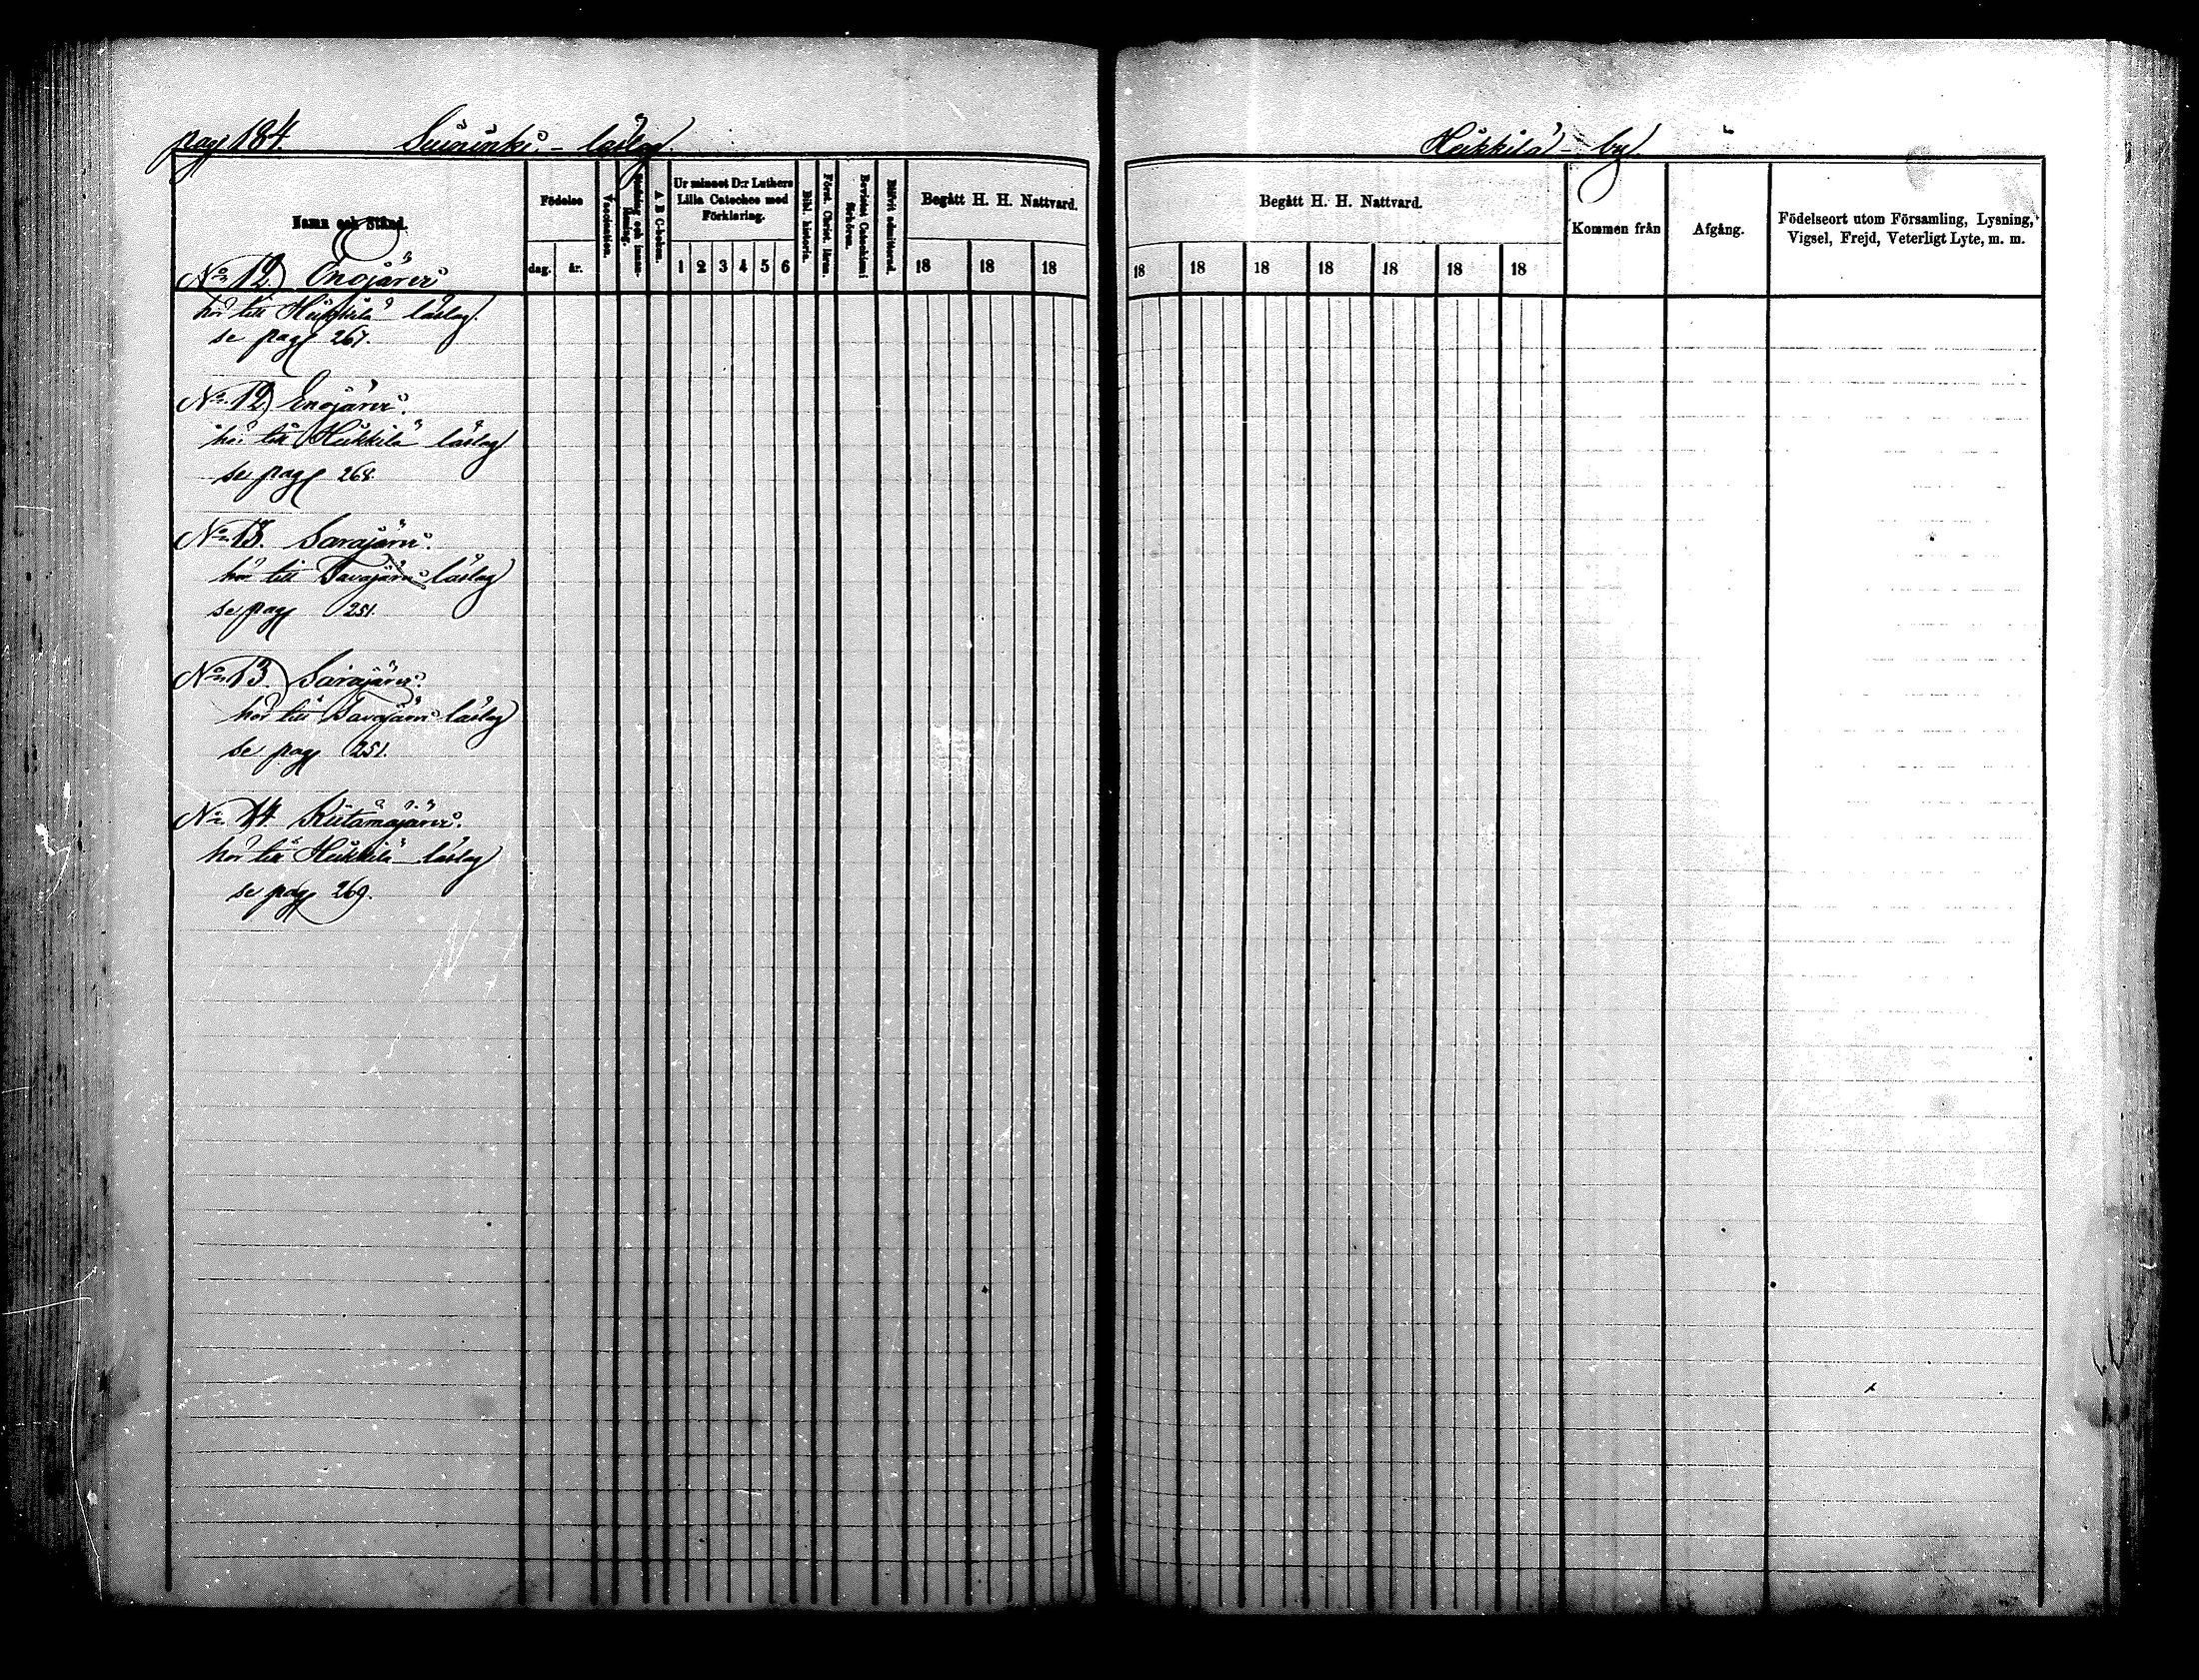 pag 184. Suininki - läslag.
Heikkilä - by.
Namn och Stånd.
Födelse
dag. år.
Vaccination.
A B C-boken.
Ur minnet D:r Luthers Lilla Cateches med Förklaring.
1 2 3 4 5 6
Bibl. historia.
Först. Christ. läran.
Bevistat Catechismi förhören.
Blifvit admitterad.
Begått H. H. Nattvard.
18 18 18
Begått H. H. Nattvard.
18 18 18 18 18 18 18
Kommen från
Afgång.
Födelseort utom Församling, Lysning, Vigsel, Frejd, Veterligt Lyte, m. m.
No 12) Enojärvi
hör till Heikkilä läslag.
se pag 267.
No 12) Enojärvi.
hör till Heikkilä läslag
se pag 268.
No 13. Sarajärvi.
hör till Tavajärvi läslag
se pag 251.
No 13) Sarajärvi.
hör till Tavajärvi läslag
se pag 251.
No 14. Riitamajärvi.
hör till Heikkilä läslag
se pag 269.